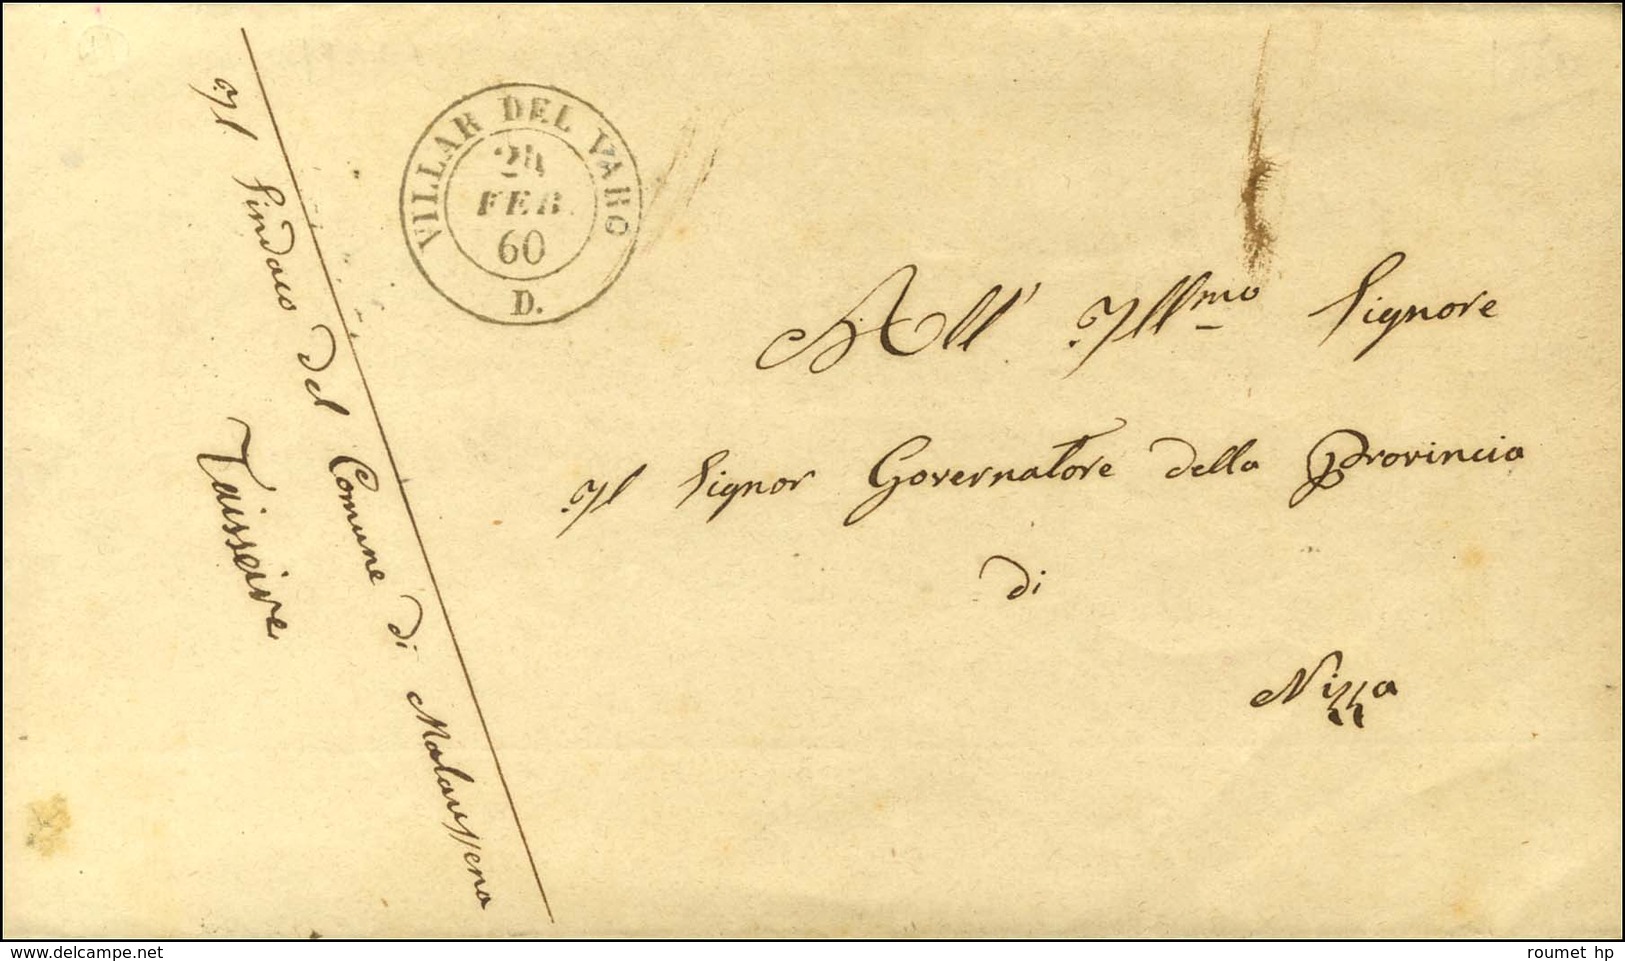 VILLAR DEL VARO
24
FEB
60
D.
Il Sindaco del Comune di Malaussena
Taisseire
All' Illmo Signore
Il Signor Governatore della Provincia
di
Nizza
www.delcampe.net
roumet hp